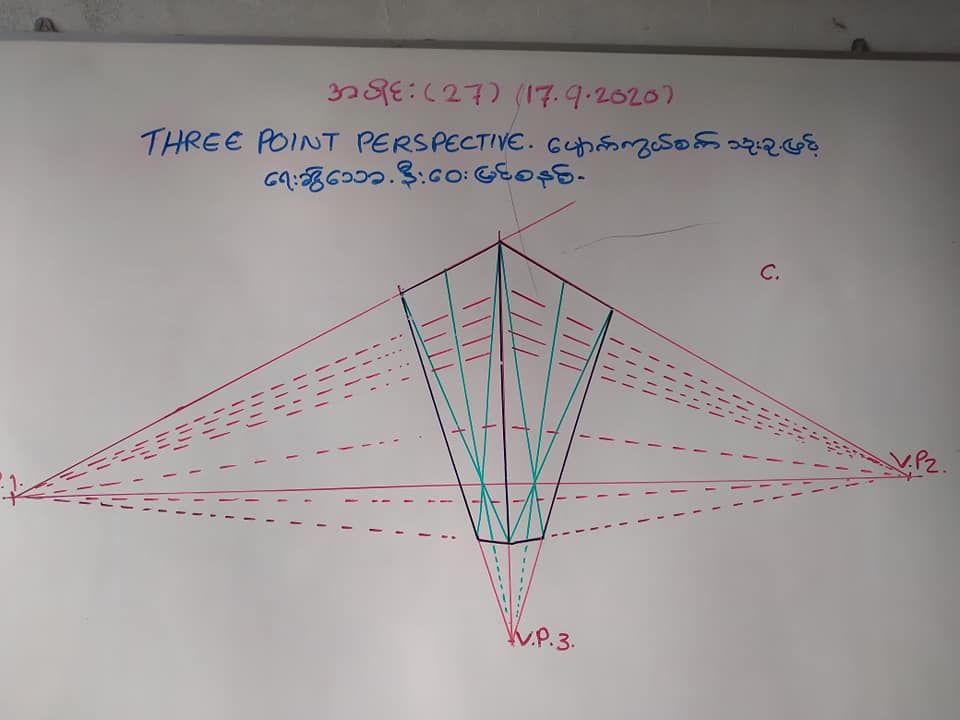 အပိုင်း (27) (17.9.2020)
THREE POINT PERSPECTIVE. ပျောက်ကွယ်စက် သုံးခုဖြင့်
ရေးဆွဲသော နီးဝေးမြင်စနစ်.
C.
V.P2.
V.P.3.